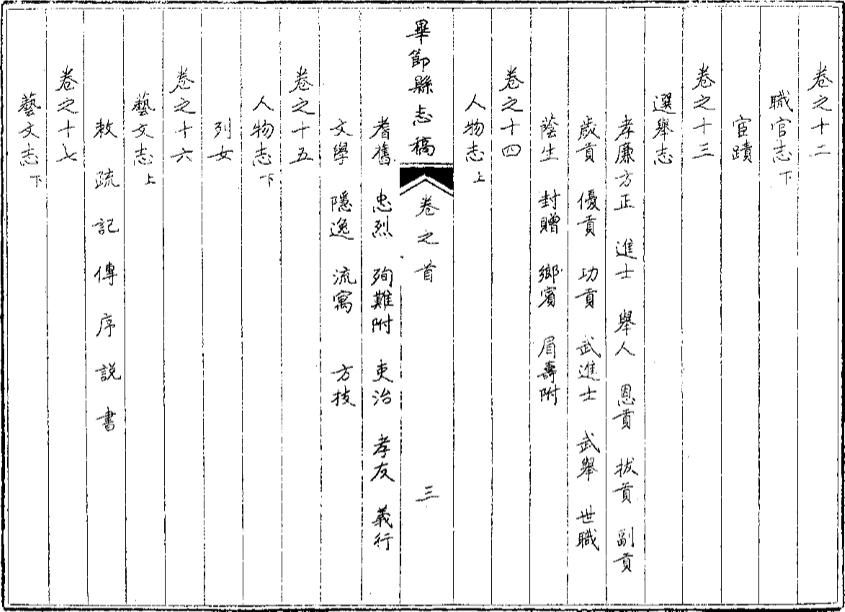 卷之十二
職官志下
宦蹟
卷之十三
選舉志
孝廉方正 進士 舉人 恩貢 拔貢 副貢
歲貢 優貢 功貢 武進士 武舉 世職
蔭生 封贈 鄉賓 眉壽附
卷之十四
人物志上
畢節縣志稿 卷之首 三
耆舊 忠烈 殉難附 吏治 孝友 義行
文學 隱逸 流寓 方技
卷之十五
人物志下
列女
卷之十六
藝文志上
敕 疏 記 傳 序 説 書
卷之十七
藝文志下